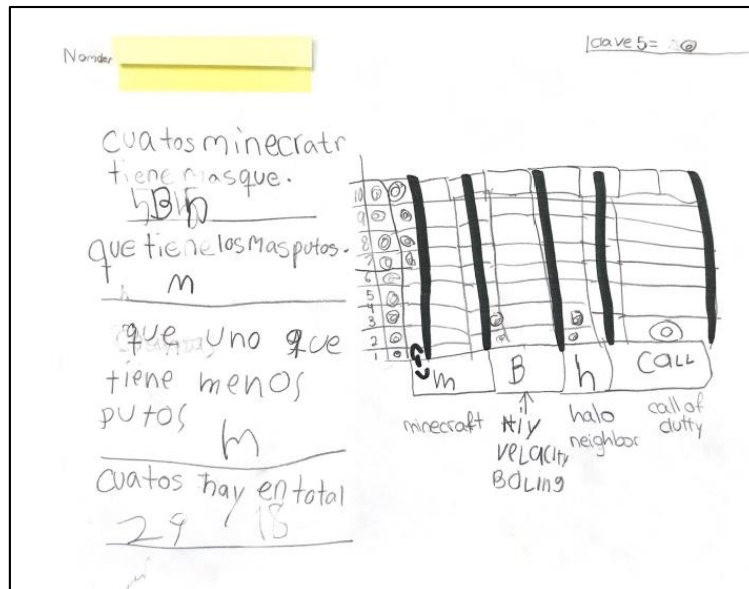 Nomder
clave 5=
cuatos minecratr
tiene masque.
que tiene los mas putos.
m
que uno que
tiene menos
putos
h
cuatos hay en total
29 18
10
9
8
7
6
5
4
3
2
1
m B h CALL
minecraft
HIY
VELACITY
BOLING
halo
neighbor
call of
dutty